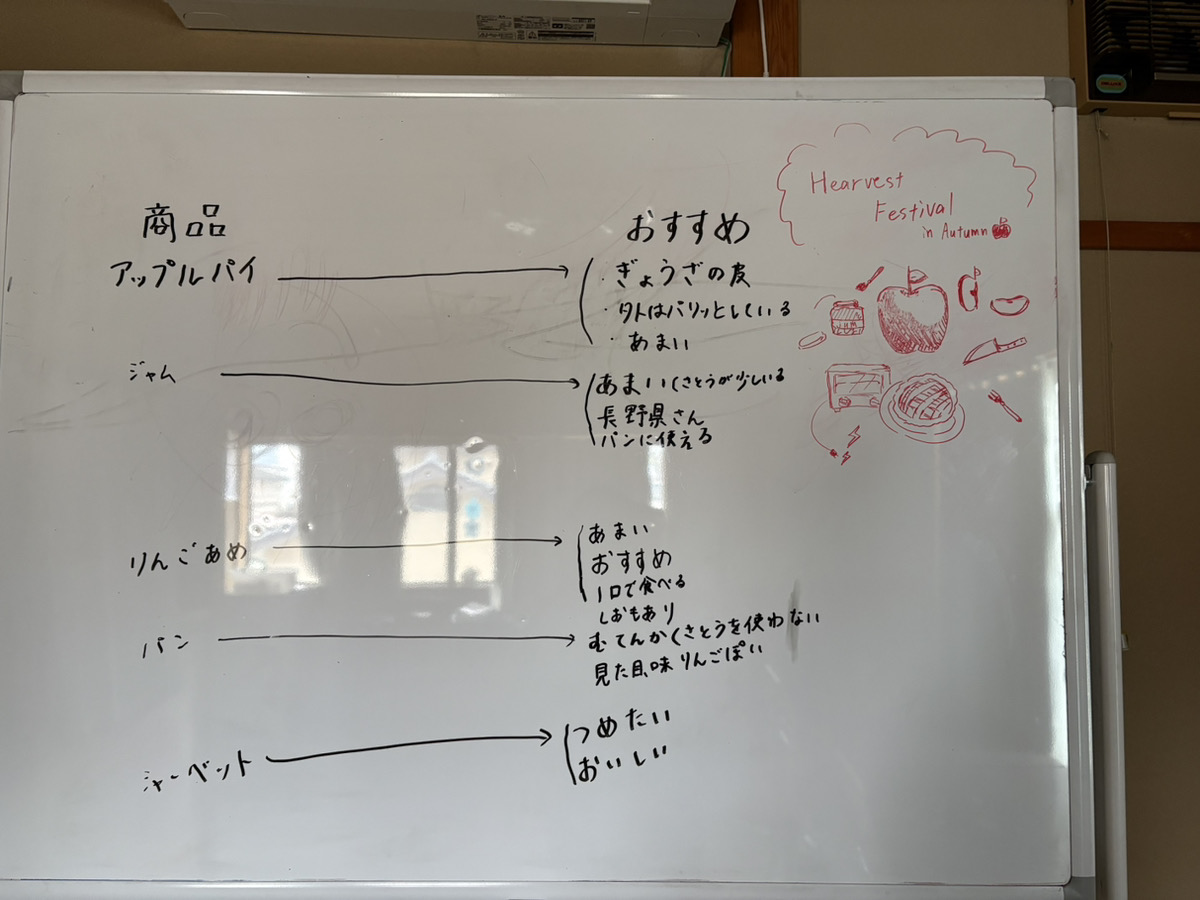 商品
おすすめ
アップルパイ
・ぎょうざの皮
・外はパリッとしている
・あまい
ジャム
あまい(さとうが少しいる
長野県さん
パンに使える
りんごあめ
あまい
おすすめ
1口で食べる
しおもあり
パン
むてんか(さとうを使わない
見た目、味りんごぽい
シャーベット
つめたい
おいしい
Hearvest
Festival
in Autumn
JAM